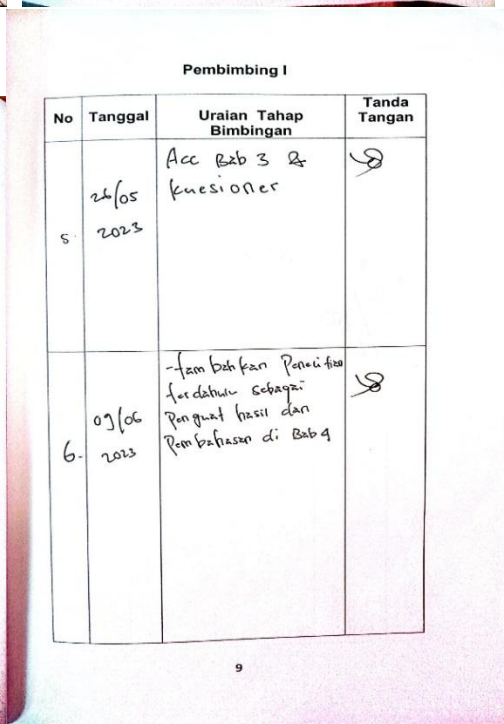 Pembimbing I
No Tanggal Uraian Tahap Bimbingan Tanda Tangan
5. 26/05 2023
Acc Bab 3 &
kuesioner
6. 09/06 2023
-tambahkan Penelitian
terdahulu sebagai
Penguat hasil dan
Pembahasan di Bab 4
9